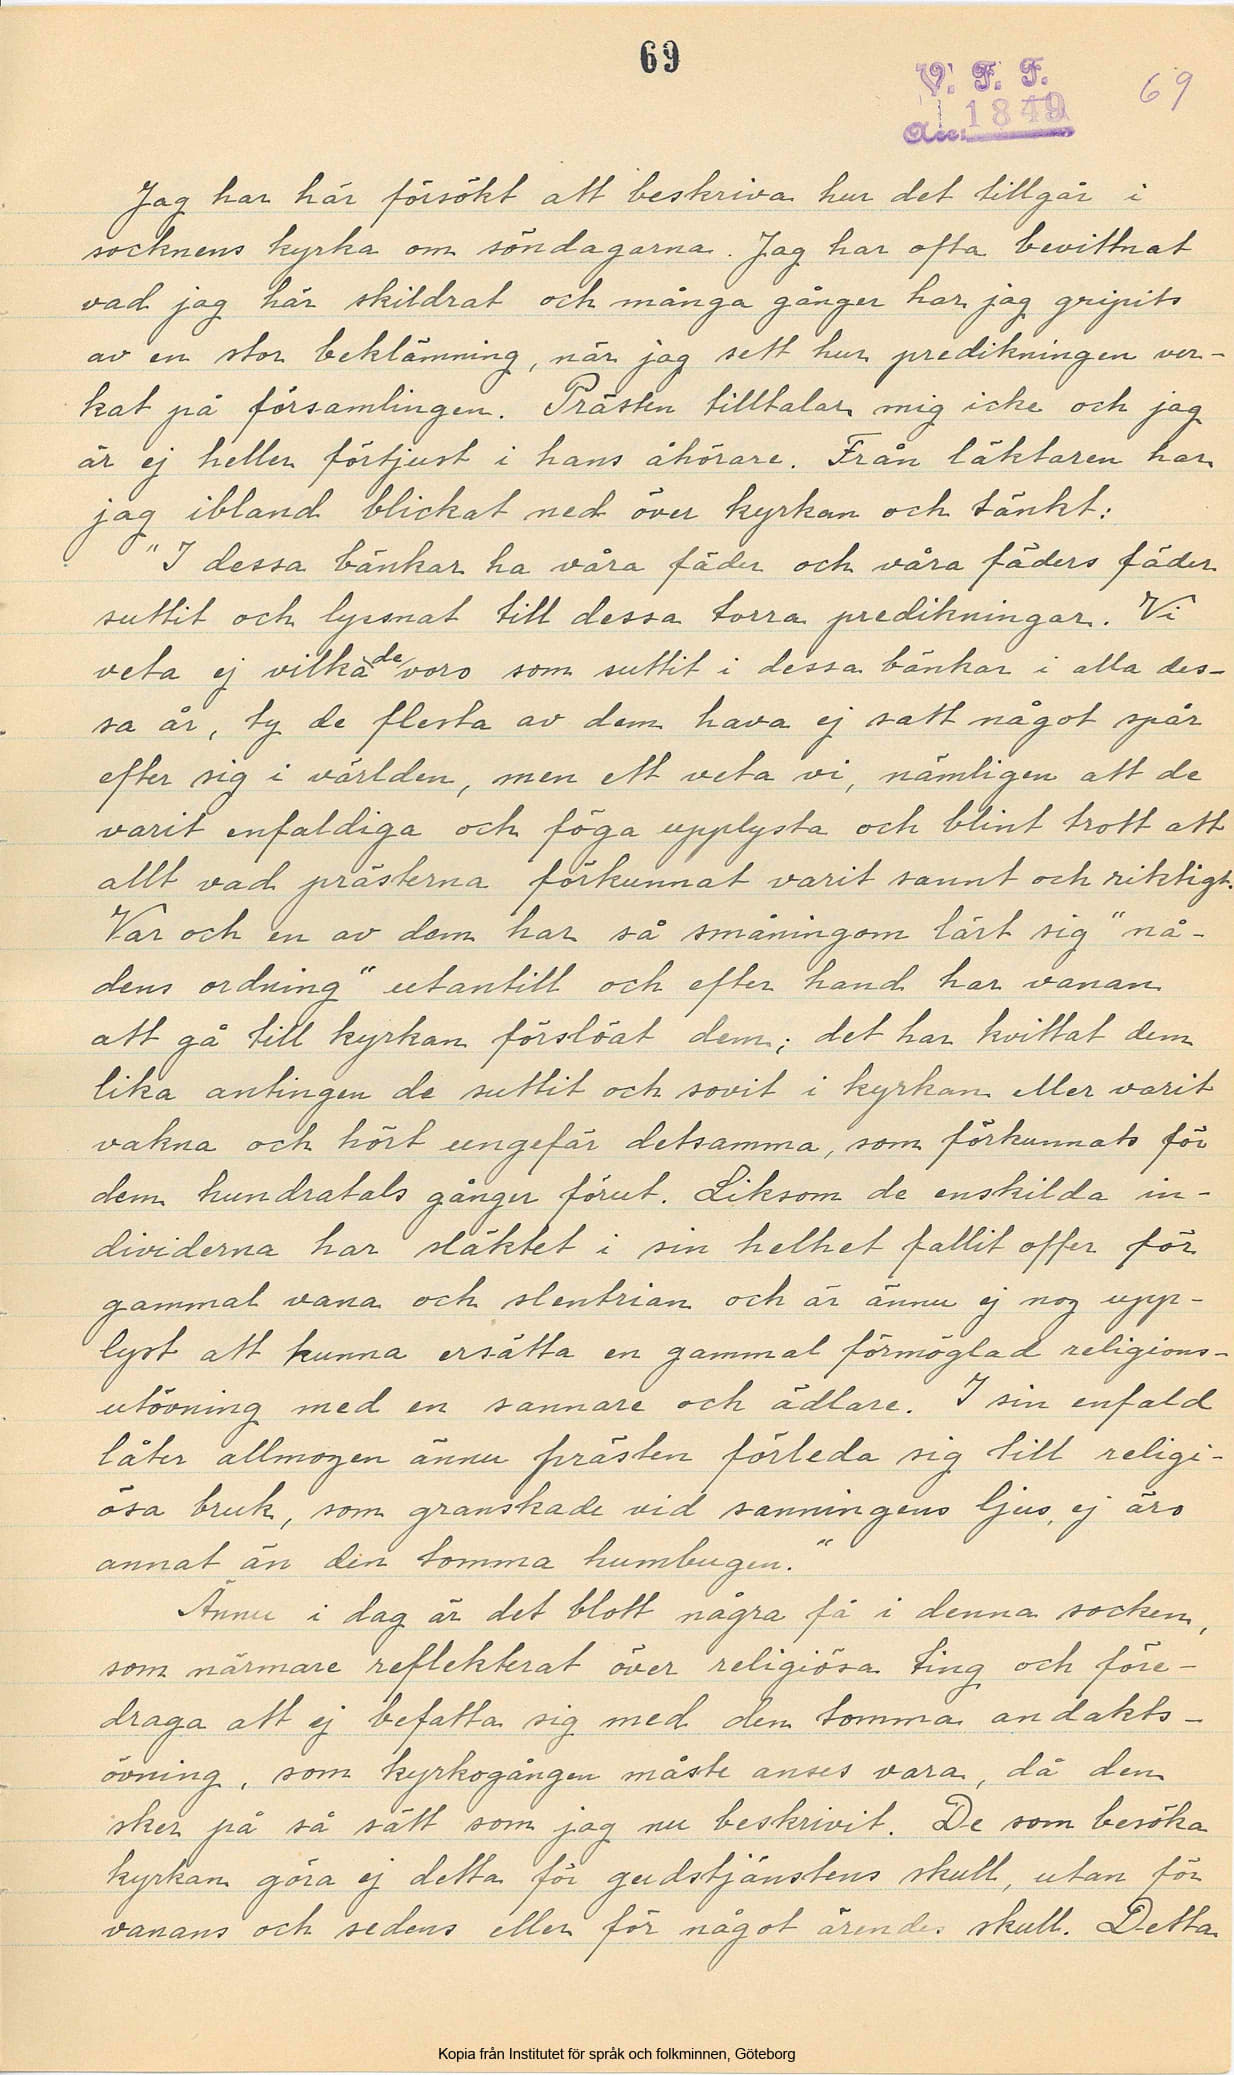 69
V. F. F.
Acc. 1849
69
Jag har här försökt att beskriva hur det tillgår i
socknens kyrka om söndagarna. Jag har ofta bevittnat
vad jag här skildrat och många gånger har jag gripits
av en stor beklämning, när jag sett hur predikningen ver-
kat på församlingen. Prästen tilltalar mig icke och jag
är ej heller förtjust i hans åhörare. Från läktaren har
jag ibland blickat ned över kyrkan och tänkt:
"I dessa bänkar ha våra fäder och våra fäders fäder
suttit och lyssnat till dessa torra predikningar. Vi
veta ej vilka de voro som suttit i dessa bänkar i alla des-
sa år, ty de flesta av dem hava ej satt något spår
efter sig i världen, men ett veta vi, nämligen att de
varit enfaldiga och föga upplysta och blint trott att
allt vad prästerna förkunnat varit sannt och riktigt.
Var och en av dem har så småningom lärt sig "nå-
dens ordning" utantill och efter hand har vanan
att gå till kyrkan förslöat dem; det har kvittat dem
lika antingen de suttit och sovit i kyrkan eller varit
vakna och hört ungefär detsamma, som förkunnats för
dem hundratals gånger förut. Liksom de enskilda in-
dividerna har släktet i sin helhet fallit offer för
gammal vana och slentrian och är ännu ej nog upp-
lyst att kunna ersätta en gammal förmöglad religions-
utövning med en sannare och ädlare. I sin enfald
låter allmogen ännu prästen förleda sig till religi-
ösa bruk, som granskade vid sanningens ljus, ej äro
annat än den tomma humbugen."
Ännu i dag är det blott några få i denna socken,
som närmare reflekterat över religiösa ting och före-
draga att ej befatta sig med den tomma andakts-
övning, som kyrkogången måste anses vara, då den
sker på så sätt som jag nu beskrivit. De som besöka
kyrkan göra ej detta för gudstjänstens skull, utan för
vanans och sedens eller för något ärendes skull. Detta
Kopia från Institutet för språk och folkminnen, Göteborg